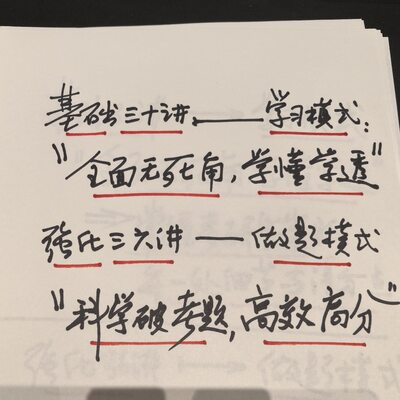 基础三十讲——学习模式：
"全面无死角，学懂学透"
强化三六讲——做题模式
"科学破考题，高效高分"